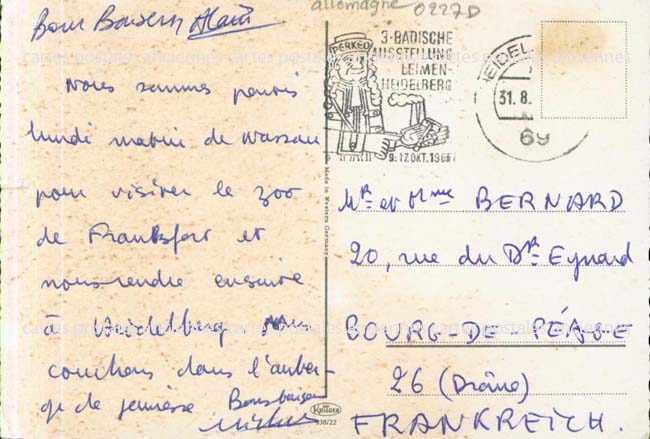 allemagne 0227D
Bons Baisers Alain
Nous sommes partis
lundi matin de Nassau
pour visiter le zoo
de Francfort et
nous rendre ensuite
à Heidelberg
couchons dans l'auber-
ge de jeunesse Bons baisers
PERKEO
3. BADISCHE
AUSSTELLUNG
LEIMEN-
HEIDELBERG
9.-17. OKT. 196
HEIDEL
31. 8.
69
Made in Western Germany
Mr et Mme BERNARD
20, rue du Dr Eynard
BOURG-DE PÉAGE
26 (Drôme)
FRANKREICH.
KRÜGER
938/22
cartes postales anciennes cartes postales anciennes
cartes postales anciennes cartes postales anciennes